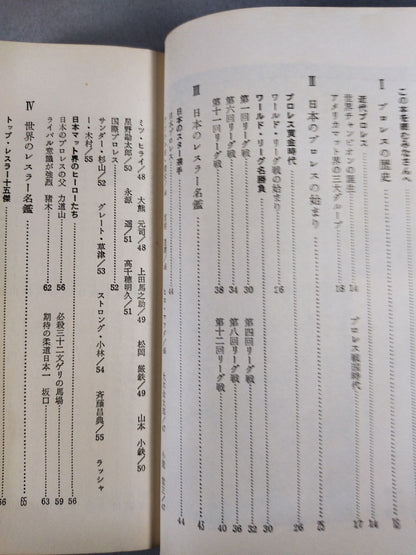 この本を読むみなさんへ
Ⅰ プロレスの歴史……15
近代プロレス……14
世界チャンピオンの誕生……18
アメリカマット界の三大グループ……24
プロレス戦国時代……17
Ⅱ 日本のプロレスの始まり……25
プロレス黄金時代……26
ワールド・リーグ戦の始まり……26
ワールド・リーグ名勝負……30
第一回リーグ戦……30
第四回リーグ戦……32
第六回リーグ戦……34
第八回リーグ戦……36
第十一回リーグ戦……38
第十二回リーグ戦……40
Ⅲ 日本のレスラー名鑑……43
日本のスター選手……44
ミツ・ヒライ/48 大熊 元司/48 上田馬之助/49 松岡 巌鉄/49 山本 小鉄/50
星野勘太郎/50 永源 遥/51 高千穂明久/51
国際プロレス……52
サンダー・杉山/52 グレート・草津/53 ストロング・小林/54 斉藤昌典/55 ラッシャ
ー・木村/55
日本マット界のヒーローたち……56
日本のプロレスの父 力道山……56
必殺三十二文ゲリの馬場……59
ライバル意識が強烈 猪木……62
期待の柔道日本一 坂口……63
Ⅳ 世界のレスラー名鑑……65
トップ・レスラー十五傑……66